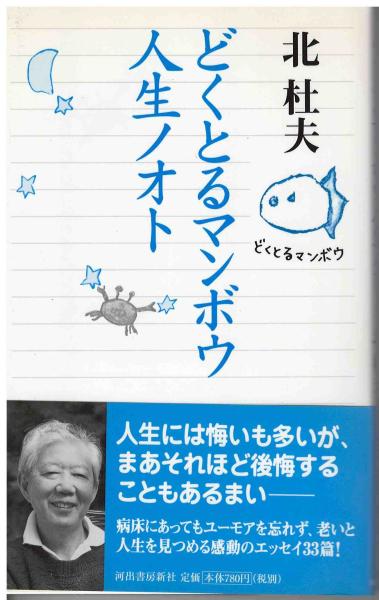 北 杜夫
どくとるマンボウ
人生ノオト
どくとるマンボウ
人生には悔いも多いが、
まあそれほど後悔する
こともあるまい――
病床にあってもユーモアを忘れず、老いと
人生を見つめる感動のエッセイ33篇!
河出書房新社 定価 本体780円(税別)